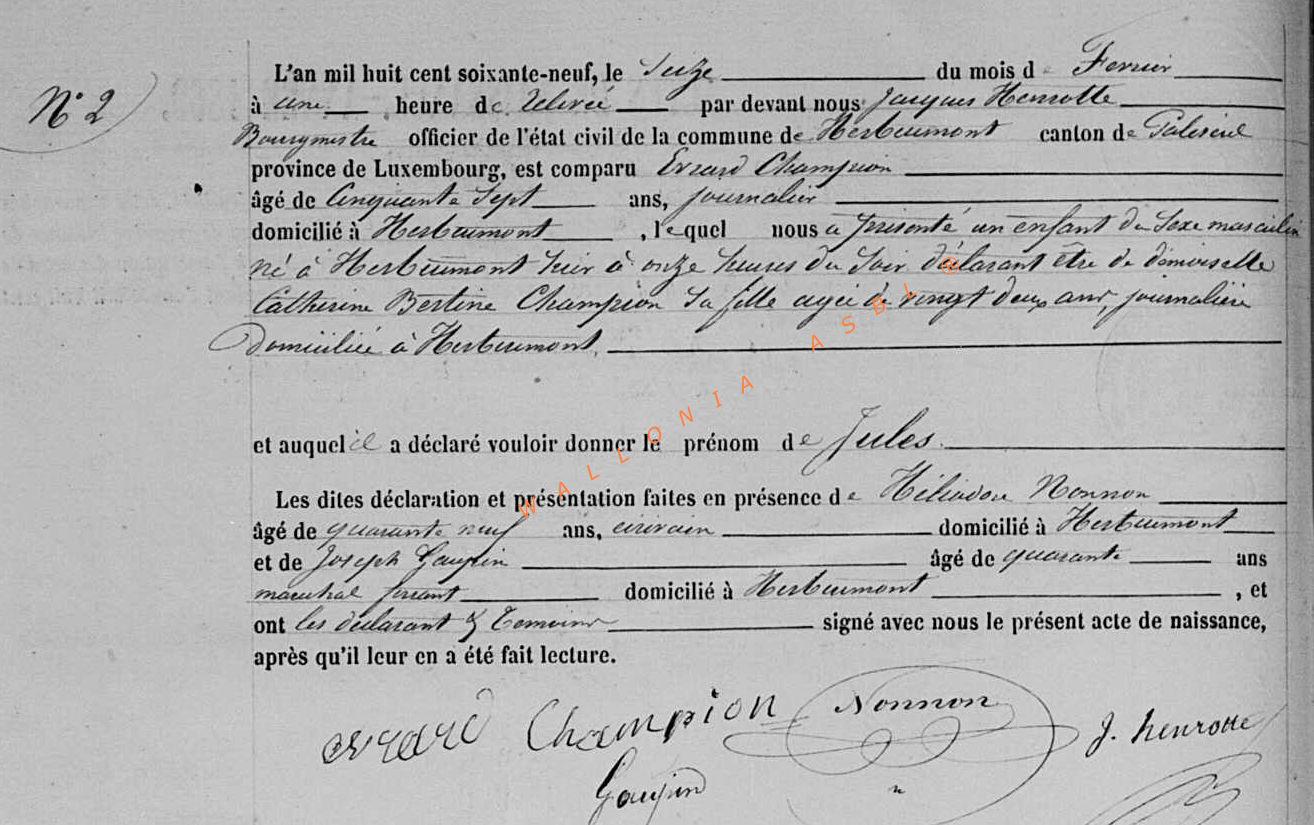 N° 2
L'an mil huit cent soixante-neuf, le Seize du mois de Fevrier
à une heure de Relevée par devant nous Jacques Henrotte
Bourgmestre officier de l'état civil de la commune de Herbeumont canton de Paliseul
province de Luxembourg, est comparu Errard Champion
âgé de Cinquante Sept ans, journalier
domicilié à Herbeumont, lequel nous a présenté un enfant du Sexe masculin
né à Herbeumont hier à onze heures du Soir déclarant être de demoiselle
Catherine Bertine Champion Sa fille agée de vingt deux ans, journalière
Domiciliée à Herbeumont.
et auquel il a déclaré vouloir donner le prénom de Jules.
Les dites déclaration et présentation faites en présence de Héliodore Nonnon
âgé de quarante neuf ans, écrivain domicilié à Herbeumont
et de Joseph Gaupin âgé de quarante ans
marechal ferrant domicilié à Herbeumont, et
ont les déclarant & Temoins signé avec nous le présent acte de naissance,
après qu'il leur en a été fait lecture.
errard Champion Nonnon J. henrotte
Gaupin
WALLONIA ASBL ©